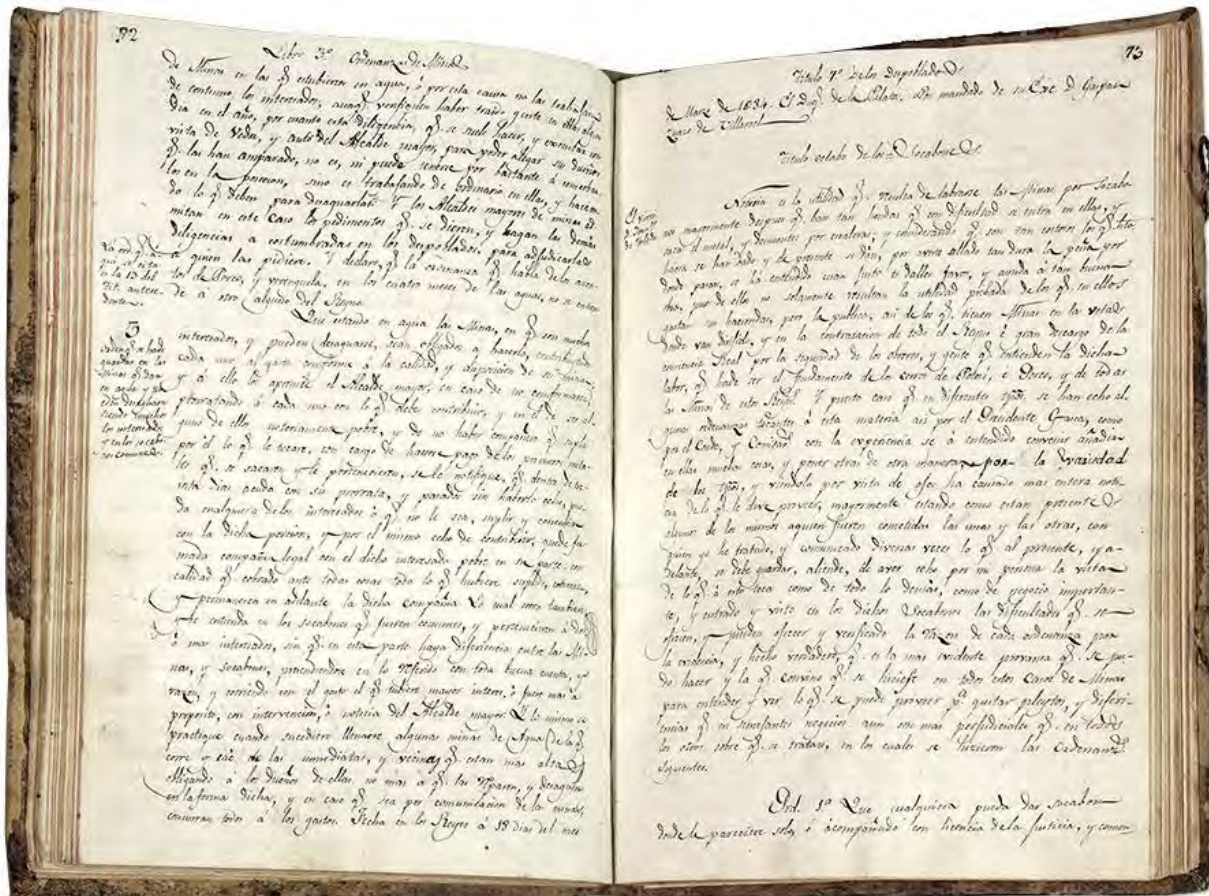 72
Libro 3º Ordenanzas de Minas
de Minas en las q. estubieren en agua, ó por esta causa no las trabajaren
de continuo los interesados, aunq. verifiquen haber traido gente en ellas algun
dia en el año, por cuanto esta diligencia, q. se suele hacer, y executar con
vista de Veedor, y auto del Alcalde mayor, para poder alegar sus dueños
q. las han amparado, no es, ni puede tenerse por bastante á
los en la posesion, sino es trabajando de ordinario en ellas, y hacien
do lo q. deben para desaguarlas. Y los Alcaldes mayores de minas ad
mitan en este caso los pedimentos q. se dieren, y hagan las demas
diligencias acostumbradas en los despoblados, para adjudicarlas
á quien las pidiere. Y declaro, q. la ordenanza q. habla de los
tos de Porco, y verenguela, en los cuatro meses de las aguas, no se entien
de á otro alguno del Reyno.
en la 13 del
Tit. antece-
dente.
3
Que estando en agua las Minas, en q. son muchos
interesados, y pueden desaguarse, sean obligados á hacerlo, contribuyendo
cada uno al gasto conforme á la calidad, y disposicion de su mina,
y á ello los apremie el Alcalde mayor, en caso de no conformarse,
prorrateando á cada uno con lo q. debe contribuir, y en el de ser al
guno de ellos notoriamente pobre, y de no haber compañero q. supla
por él lo q. le tocare, con cargo de hacerse pago de los primeros meta
les q. se sacaren y le pertenecieren, se le notifique, q. dentro de
inta dias acuda con su prorrata, y pasados sin haberlo echo, pue
da cualquiera de los interesados ó q. no lo sea, suplir y contribuir
con la dicha porcion, y por el mismo echo de contribuir, quede for
mada compañia legal con el dicho interesado pobre en su parte: con
calidad q. cobrado ante todas cosas todo lo q. hubiere suplido,
y permanezca en adelante la dicha compañia. Lo cual sea tambien,
y se entienda en los socabones q. fueren comunes, y pertenecieren á dos
ó mas interesados, sin q. en esta parte haya diferencia entre las Mi
nas, y socabones, procediendose en lo referido con toda buena cuenta, y
razon, y corriendo con el gasto el q. tubiere mayor interes, ó fuere mas á
proposito, con intervencion, ó noticia del Alcalde mayor. Y lo mismo se
practique cuando sucediere llenarse algunas minas de Agua de la q.
corre ó cae de las inmediatas, y vecinas q. estan mas altas
obligando á los dueños de ellas no mas á q. las reparen, y desaguen
en la forma dicha, y en caso q. sea por comunicacion de la misma,
concurran todos á los gastos. Fecha en los Reyes á 18 dias del mes
73
Titulo 7º De los Despoblados
de Marzo de 1684. El Duq. de la Palata. Por mandado de su Exc. D. Gaspar
Zuaso de Villarroel
Titulo octabo de los Socabones
Notoria es la utilidad q. resulta de labrarse las Minas por Socabo
nes mayormente despues q. han tan hondas q. con dificultad se entra en ellas, y
saca el metal, y desmontes por escaleras: y considerando q. son tan costosos los q. hasta
haora se han dado y de presente se dán, por averse allado tan dura la peña por
donde pasan, se ha entendido cuan justo es dalles favor, y ayuda á tan buena
obra, pues de ellos no solamente resultan la utilidad privada de los q. en ellos
gastan sus haciendas, pero la publica, asi de los q. tienen Minas en la
donde van dirijidos, y en la contratacion de todo el Reyno é gran descargo de la
conciencia Real por la seguridad de los obreros, y gente q. entienden la dicha
labor, q. hade ser el fundamento de los cerros de Potosi, é Porco, y de todas
las Minas de estos Reynos. Y puesto caso q. en diferentes tpos. se han echo al
gunas ordenanzas tocantes á esta materia asi por el Presidente Gasca, como
por el Conde, y Comisarios con la experiencia se á entendido convenir añadir
en ellas muchas cosas, y poner otras de otra manera por la variedad
de los tpos, y viendolo por vista de ojos ha causado mas entera noti
cia de lo q. se deve proveer, mayormente estando como estan presentes
algunos de los mismos aquien fueron cometidas las unas y las otras, con
quien yo he tratado, y comunicado diversas veces lo q. al presente, y a-
delante, se debe guardar, aliende, de aver echo por mi persona la visita
de lo q. á esto toca como de todo lo demas, como de negocio importan-
te, y entrado y visto en los dichos Socabones las dificultades q. se
ofrecen, y pueden ofrecer y verificado la razon de cada ordenanza por
la evidencia, y hecho verdadero, q. es la mas evidente provanza q. se pu
do hacer y la q. convino q. se hiciese en todos estos casos de Minas
para entender y ver lo q. se puede proveer pª quitar pleytos, y difere
ncias q. en semejantes negocios aun son mas perjudiciales q. en todos
los otros sobre q. se tratan, en los cuales se hizieron las Ordenanzs.
siguientes.
Ord. 1ª Que cualquiera pueda dar socabon
donde le pareciere solo, ó acompañado con licencia de la Justicia, y comen-